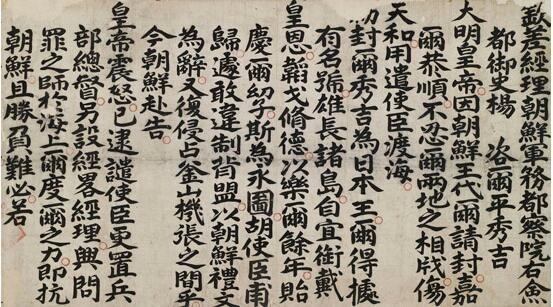 欽差經理朝鮮軍務都察院右僉
都御史楊 咨爾平秀吉
大明皇帝因朝鮮王代爾請封嘉
爾恭順不忍爾兩地之相戕傷
天和用遣使臣渡海
勅封爾秀吉為日本王爾得擁
有名號雄長諸島自宜銜戴
皇恩韜戈脩德以樂爾餘年貽
慶爾幼子斯為永圖胡使臣甫
歸遽敢違制背盟以朝鮮禮文
為辭又復侵占釜山機張之間乎
今朝鮮赴告
皇帝震怒已逮譴使臣更置兵
部總督另設經畧經理興問
罪之師於海上爾度爾之力即抗
朝鮮且勝負難必若